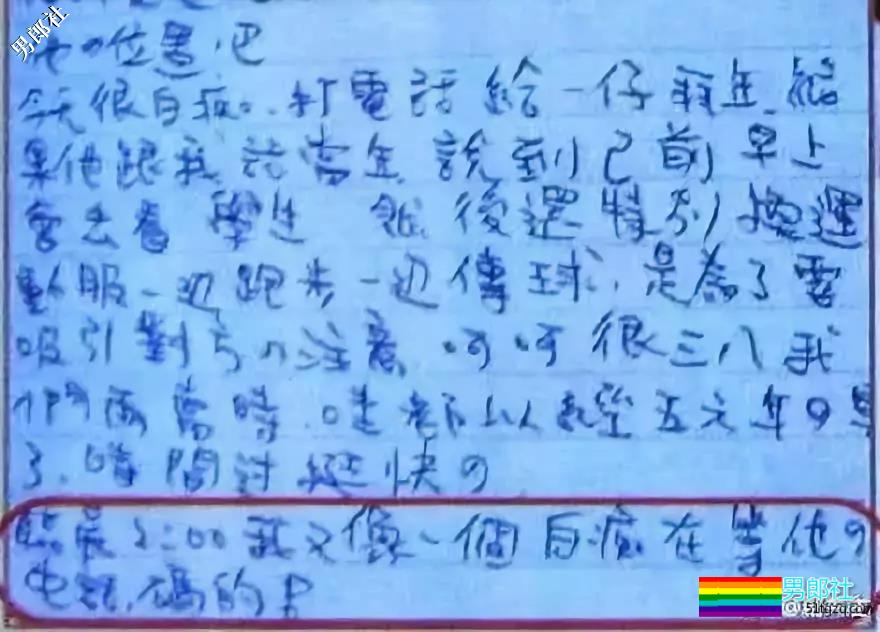 男郎社
他の位置吧
今天很白痴。打電話給一仔 結
果他跟我 當年 說到已前早上
會去看 學生 然後還特別換運
動服一边跑步一边傳球,是為了要
吸引對方の注意 呵呵 很三八 我
們兩當時 哇都以 五六年の事
了.時間過挺快の
臨晨2:00我又像一個白痴在等他の
电話,媽的
男郎社